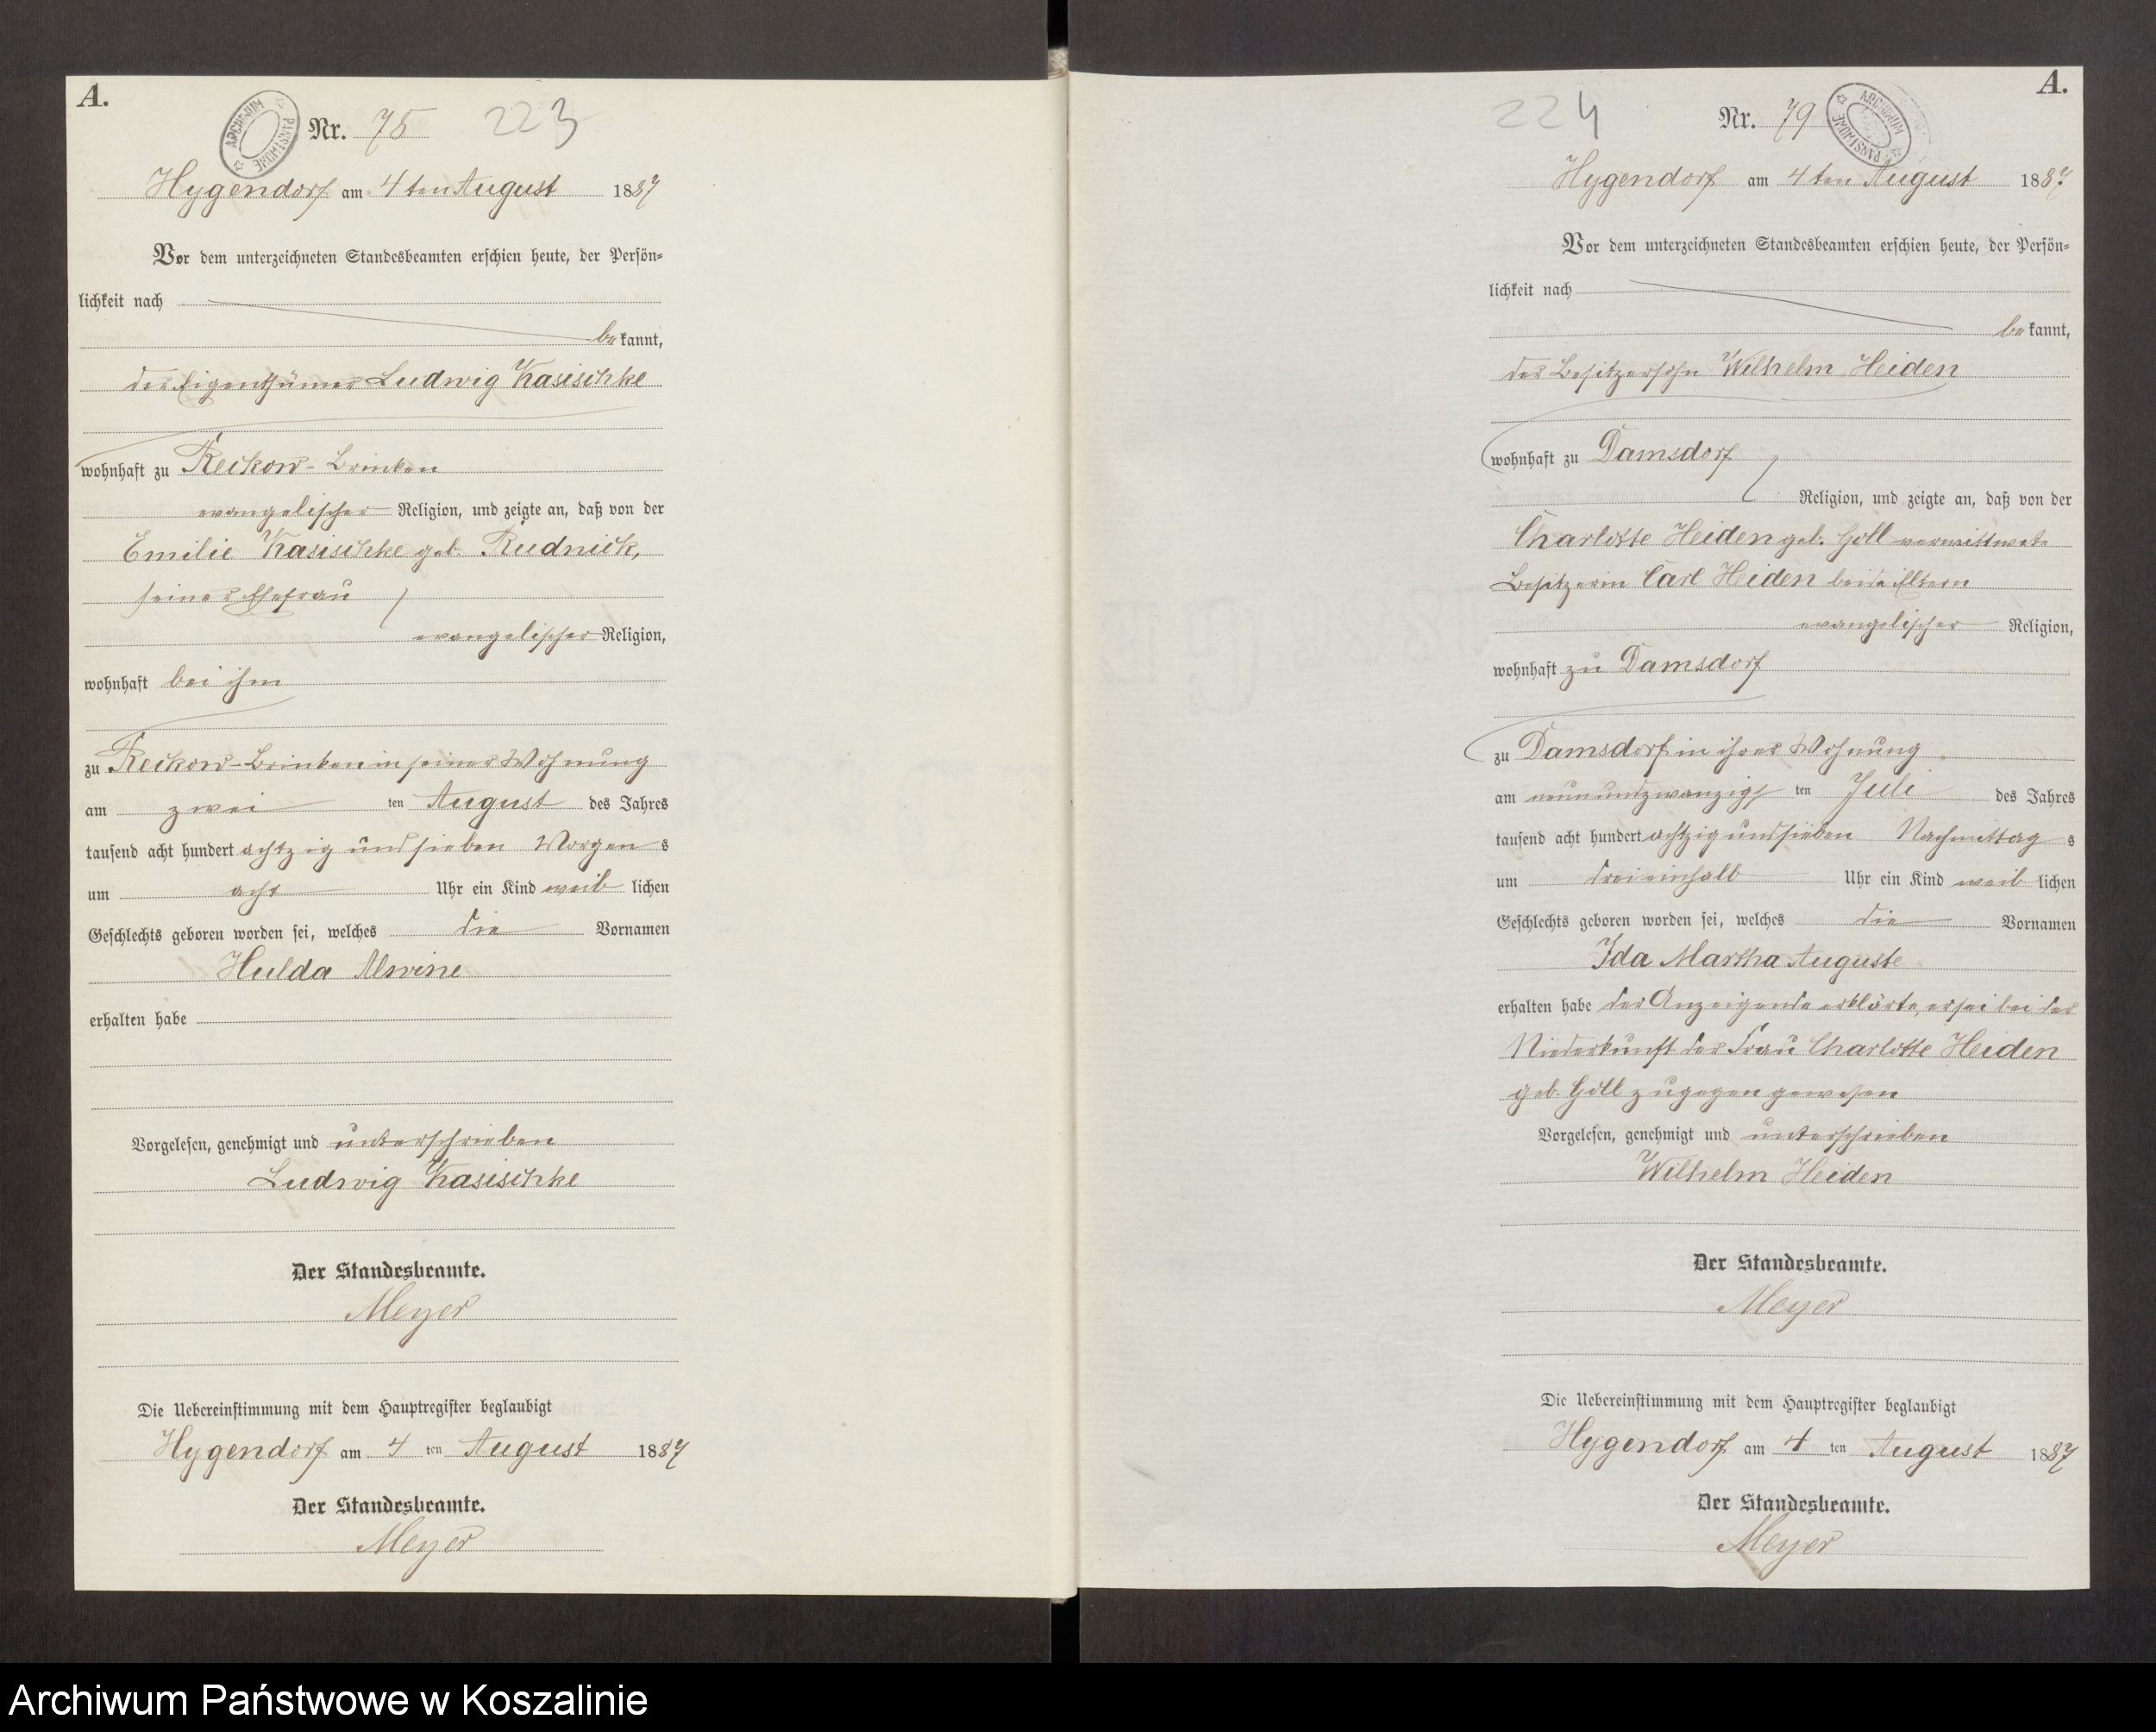 A.
ARCHIWUM PAŃSTWOWE
Nr. 75 223
Hygendorf am 4ten August 1887
Vor dem unterzeichneten Standesbeamten erschien heute, der Persön-
lichkeit nach
bekannt,
der Eigenthümer Ludwig Kasischke
wohnhaft zu Reckow-Brinken
evangelischer Religion, und zeigte an, daß von der
Emilie Kasischke geb. Rudnick,
seiner Ehefrau
evangelischer Religion,
wohnhaft bei ihm
zu Reckow-Brinken in seiner Wohnung
am zwei ten August des Jahres
tausend acht hundert achtzig und sieben Morgens
um acht Uhr ein Kind weiblichen
Geschlechts geboren worden sei, welches die Vornamen
Hulda Alwine
erhalten habe
Vorgelesen, genehmigt und unterschrieben
Ludwig Kasischke
Der Standesbeamte.
Meyer
Die Uebereinstimmung mit dem Hauptregister beglaubigt
Hygendorf am 4 ten August 1887
Der Standesbeamte.
Meyer
A.
ARCHIWUM PAŃSTWOWE
224 Nr. 79
Hygendorf am 4ten August 1887
Vor dem unterzeichneten Standesbeamten erschien heute, der Persön-
lichkeit nach
bekannt,
der Besitzersohn Wilhelm Heiden
wohnhaft zu Damsdorf
Religion, und zeigte an, daß von der
Charlotte Heiden geb. Goll verwittwete
Besitzerin Carl Heiden beide Eltern
evangelischer Religion,
wohnhaft zu Damsdorf
zu Damsdorf in ihrer Wohnung
am neunundzwanzigs ten Juli des Jahres
tausend acht hundert achtzig und sieben Nachmittags
um dreieinhalb Uhr ein Kind weiblichen
Geschlechts geboren worden sei, welches die Vornamen
Ida Martha Auguste
erhalten habe der Anzeigende erklärte, er sei bei der
Niederkunft der Frau Charlotte Heiden
geb. Goll zugegen gewesen
Vorgelesen, genehmigt und unterschrieben
Wilhelm Heiden
Der Standesbeamte.
Meyer
Die Uebereinstimmung mit dem Hauptregister beglaubigt
Hygendorf am 4 ten August 1887
Der Standesbeamte.
Meyer
Archiwum Państwowe w Koszalinie